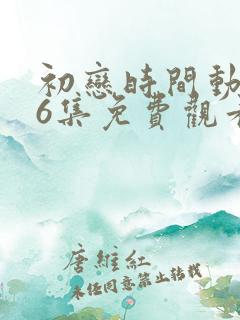 初戀時間動
6集免費觀看
唐維紅
未經同意禁止轉載